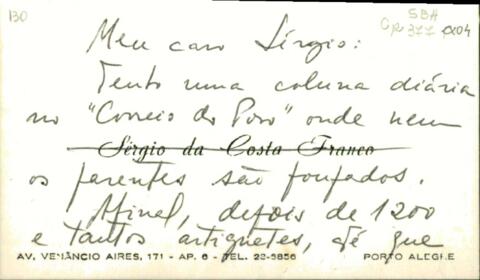 130
SBH
Cp 377 P04
Meu caro Sérgio:
Tento uma coluna diária
no "Correio do Povo" onde nem
Sérgio da Costa Franco
os parentes são poupados.
Afinal, depois de 1200
e tantos artiguetes, é que
AV. VENÂNCIO AIRES, 171 - AP. 6 - TEL. 22-5856
PORTO ALEGRE